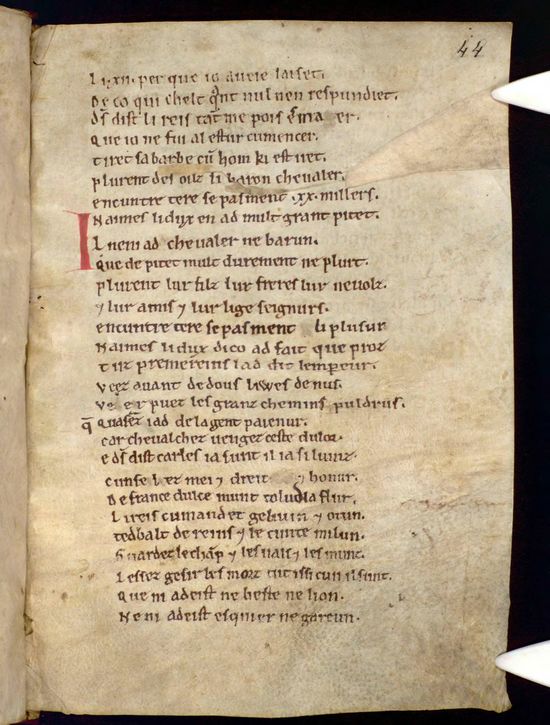 44
Li .xii. per que io aveie laiset.
De co qui chelt quant nul nen respundiet.
ds dist li reis tant me pois er.
Que io ne fui al estur cumencer.
tiret sa barbe cum hom ki est iret.
plurent des oilz li baron chevaler.
encuntre tere se pasment .xx. millers.
Naimes li dux en ad mult grant pitet.
Il nen i ad chevaler ne barun.
Que de pitet mult durement ne plurt.
plurent lur filz lur freres lur nevolz.
7 lur amis 7 lur lige seignurs.
encuntre tere se pasment li plusur
Naimes li dux dico ad fait que proz
tut premereins lad dit lempereur.
veez avant de dous liwes de nus.
er puet les granz chemins puldrus.
q̄ Quasez i ad de la gent paienur.
car chevalchez vengez ceste dulor.
e ds dist carles ia sunt il ia si luinz.
cunseilez mei 7 dreit 7 honur.
De france dulce munt tolud la flur.
Li reis cumandet gebuin 7 otun.
tedbalt de reins 7 le cunte milun.
Guardez le champ 7 les vals 7 les munz.
Lessez gesir les morz tut issi cun il sunt.
Que ni adeist ne beste ne lion.
Ne ni adeist esquier ne garcun.